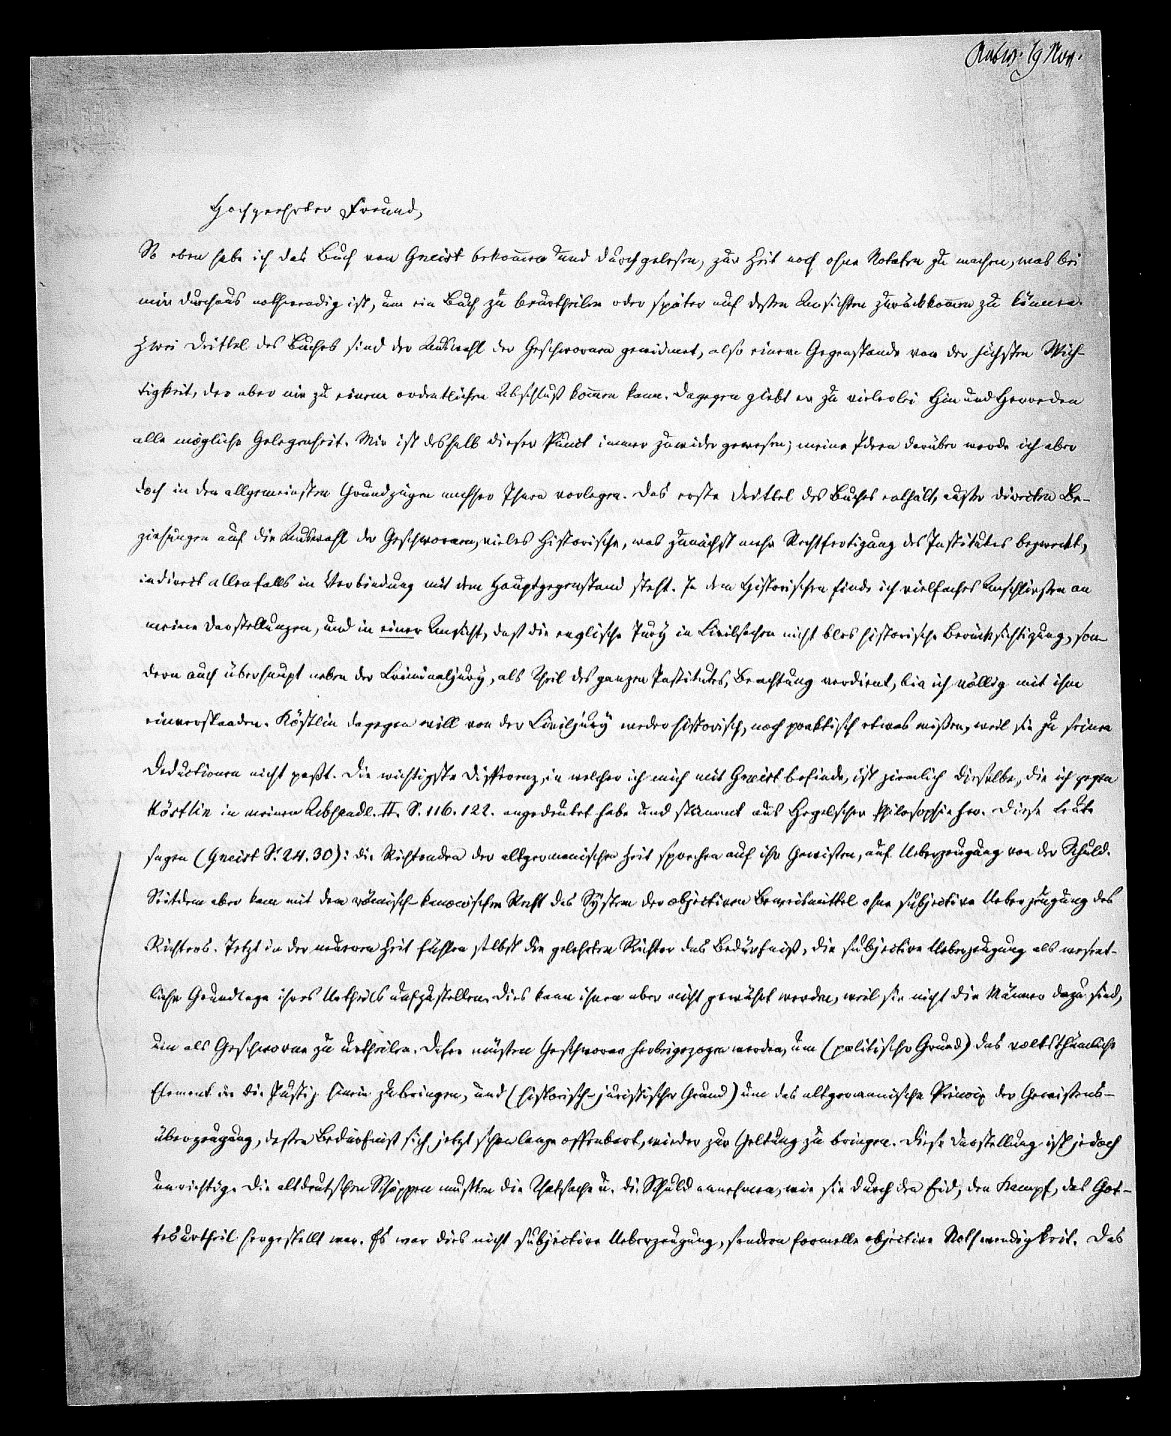 Antw. 19 Nov.
Hochgeehrter Freund,
So eben habe ich das Buch von Gneist bekom̄en und durchgelesen, zur Zeit noch ohne Notaten zu machen, was bei
mir durchaus nothwendig ist, um ein Buch zu beurtheilen oder später auf dessen Ansichten zurückkom̄en zu können.
Zwei Drittel des Buches sind der Auswahl der Geschworenen gewidmet, also einem Gegenstande von der höchsten Wich-
tigkeit, der aber nie zu einem ordentlichen Abschluß kom̄en kann. Dagegen giebt er zu vielerlei Hin und Herreden
alle mögliche Gelegenheit. Mir ist deshalb dieser Punct immer zuwider gewesen; meine Ideen darüber werde ich aber
doch in den allgemeinsten Grundzügen nachher Ihnen vorlegen. Das erste Drittel des Buches enthält, außer directen Be-
ziehungen auf die Auswahl der Geschworenen, vieles Historische, was zunächst mehr Rechtfertigung des Institutes bezweckt,
indirect allenfalls in Verbindung mit dem Hauptgegenstand steht. In dem Historischen finde ich vielfaches Anschließen an
meine Darstellungen, und in einer Ansicht, daß die englische Jury in Civilsachen nicht blos historische Berücksichtigung, son-
dern auch überhaupt neben der Criminaljury, als Theil des ganzen Institutes, Beachtung verdient, bin ich völlig mit ihm
einverstanden. Köstlin dagegen will von der Civiljury weder historisch, noch praktisch etwas wissen, weil sie zu seinen
Deductionen nicht paßt. Die wichtigste Differenz, in welcher ich mich mit Gneist befinde, ist ziemlich dieselbe, die ich gegen
Köstlin in meinen Abhandl. II. S. 116. 122. angedeutet habe und stammt aus Hegelscher Philosophie her. Diese Leute
sagen (Gneist S. 24. 30): die Richtenden der altgermanischen Zeit sprechen auf ihr Gewissen, auf Ueberzeugung von der Schuld.
Seitdem aber kam mit dem römisch-kanonischen Recht das System der objectiven Beweismittel ohne subjective Ueberzeugung des
Richters. Jetzt in der neueren Zeit fühlen selbst die gelehrten Richter das Bedürfniß, die subjective Ueberzeugung als wesent-
liche Grundlage ihres Urtheils aufzustellen. Dies kann ihnen aber nicht gewährt werden, weil sie nicht die Männer dazu sind,
um als Geschworne zu urtheilen. Daher müssen Geschworne herbeigezogen werden, um (politischer Grund) das volksthümliche
Element in die Justiz hinein zu bringen, und (historisch-juristischer Grund) um das altgermanische Princip der Gewissens-
überzeugung, dessen Bedürfniß sich jetzt schon lange offenbart, wieder zur Geltung zu bringen. Diese Darstellung ist jedoch
unrichtig. Die altdeutschen Schöppen mußten die Thatsache u. die Schuld annehmen, wie sie durch den Eid, den Kampf, das Got-
tesurtheil hergestellt war. Es war dies nicht subjective Ueberzeugung, sondern formelle objective Nothwendigkeit. Das